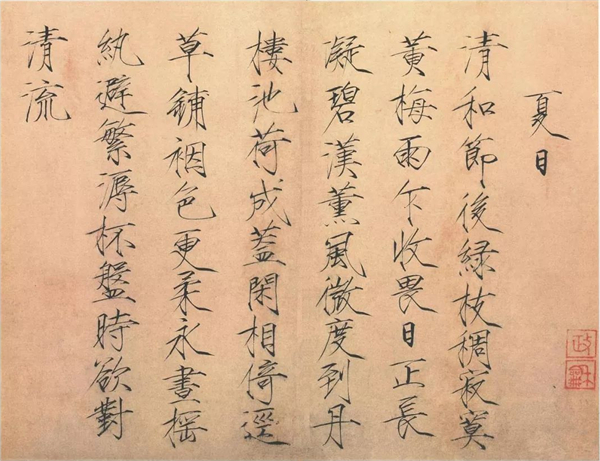 夏日
清和節後緑枝稠寂寞
黄梅雨乍收畏日正長
凝碧漢薰風微度到丹
樓池荷成蓋閑相倚逕
草鋪裀色更柔永晝摇
紈避繁溽杯盤時欲對
清流
政龢